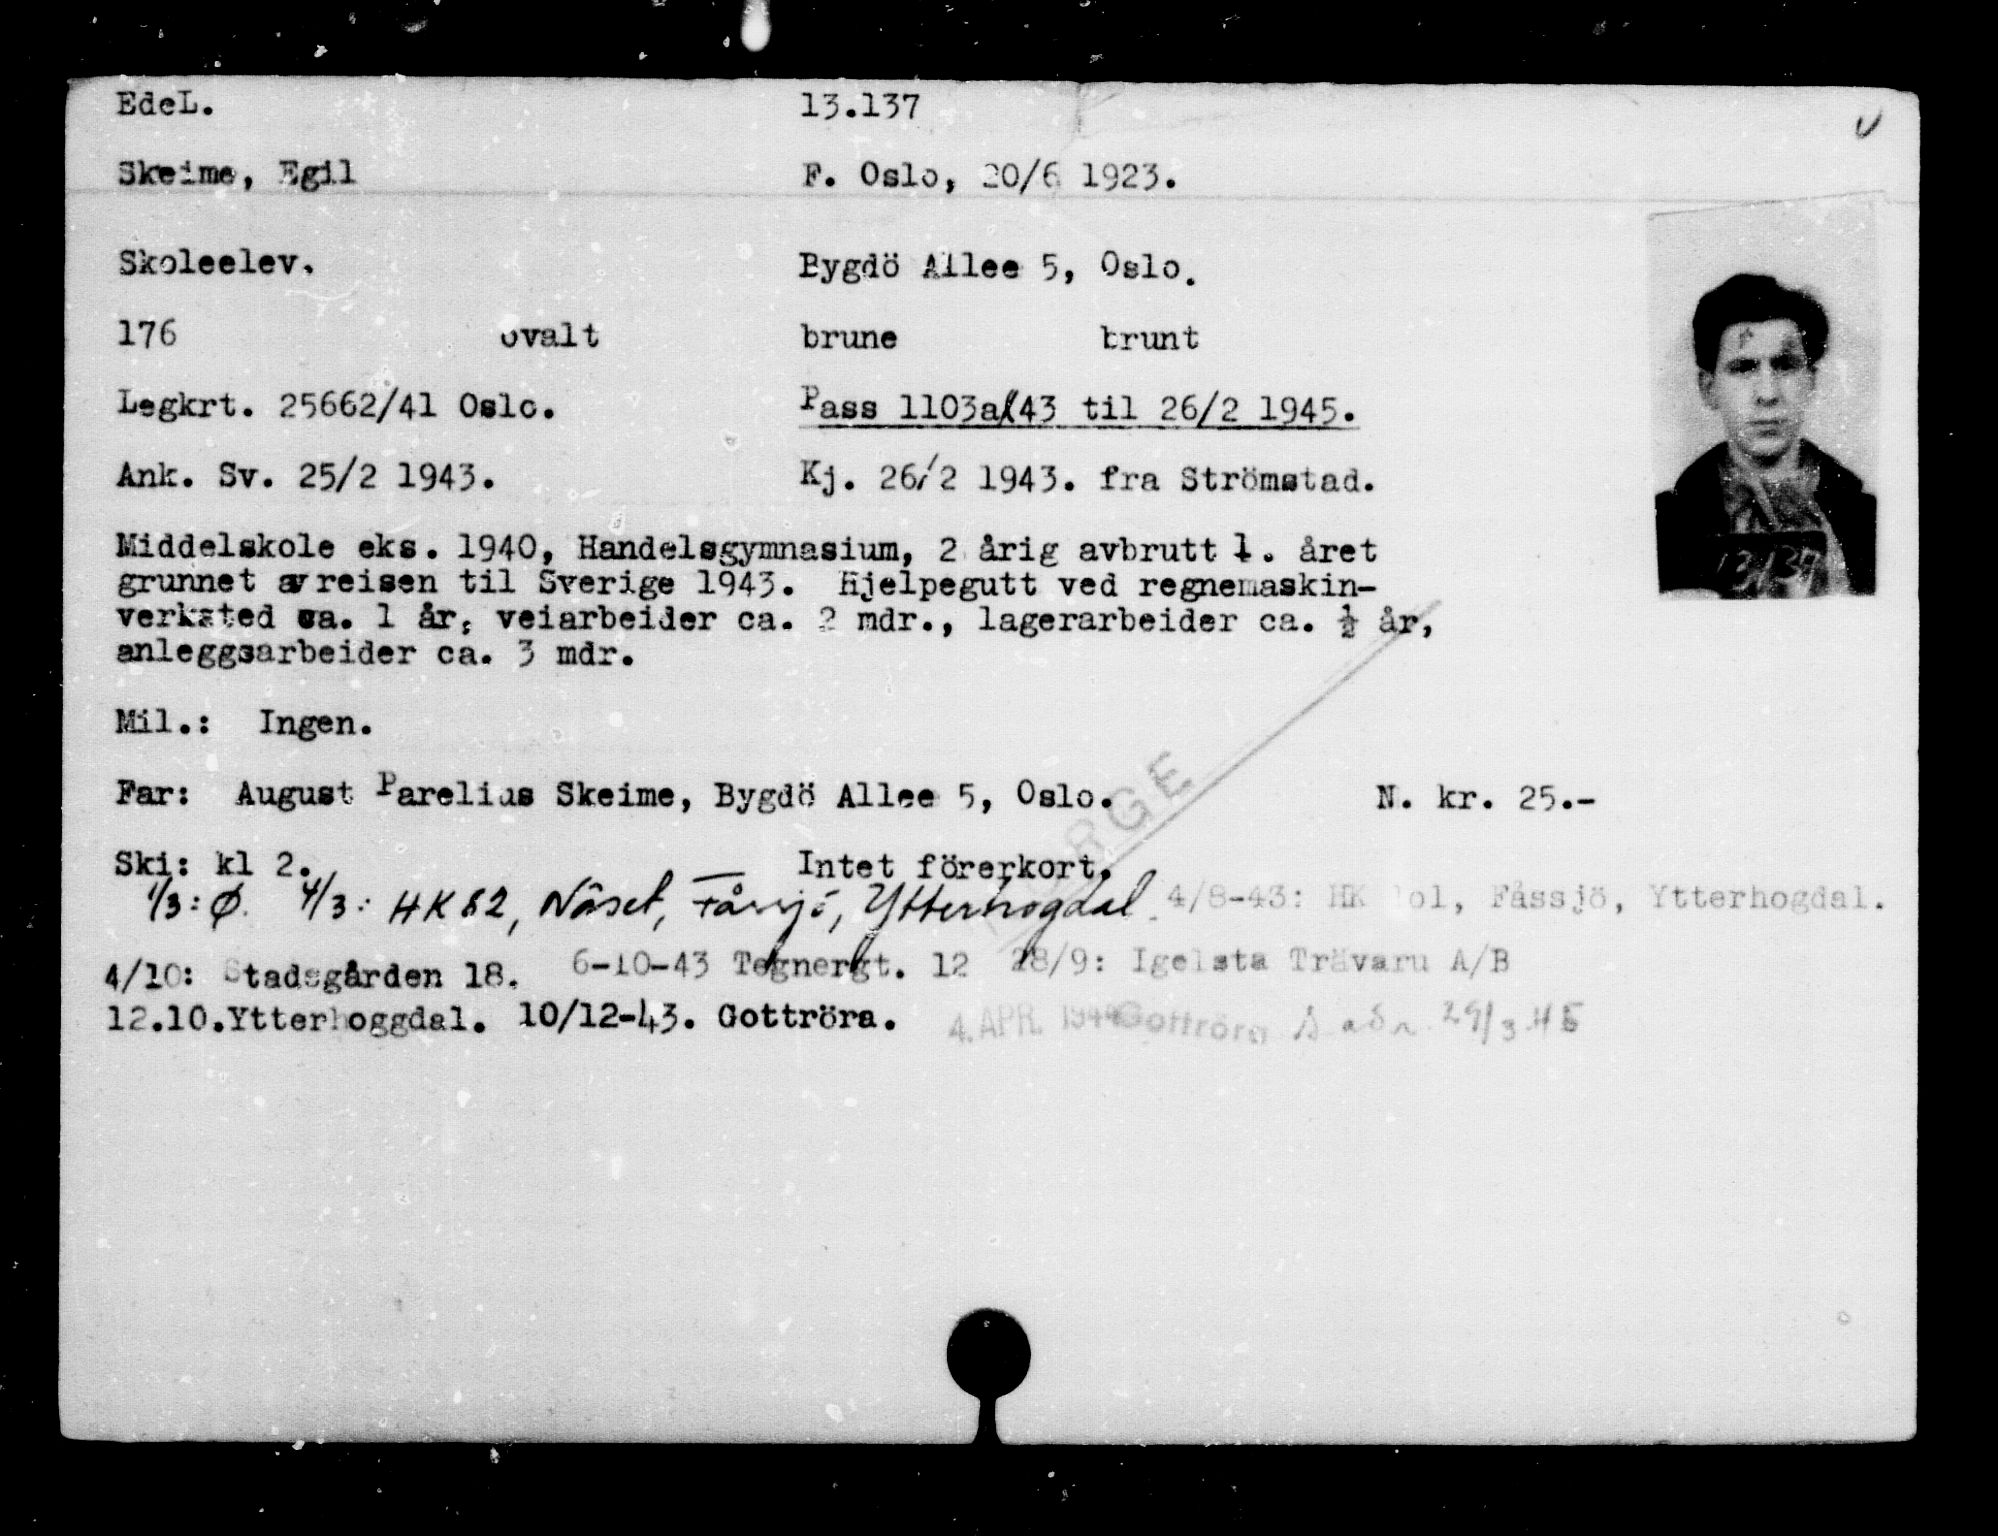 EdeL. 13.137
Skeime, Egil F. Oslo, 20/6 1923.
Skoleelev. Bygdö Allee 5, Oslo.
176 ovalt brune brunt
Legkrt. 25662/41 Oslo. Pass 1103a/43 til 26/2 1945.
Ank. Sv. 25/2 1943. Kj. 26/2 1943. fra Strömstad.
13137
Middelskole eks. 1940, Handelsgymnasium, 2 årig avbrutt 1. året
grunnet av reisen til Sverige 1943. Hjelpegutt ved regnemaskin-
verksted ca. 1 år, veiarbeider ca. 2 mdr., lagerarbeider ca. ½ år,
anleggsarbeider ca. 3 mdr.
Mil.: Ingen.
Far: August Parelius Skeime, Bygdö Allee 5, Oslo. N. kr. 25.-
Ski: kl 2. Intet förerkort.
1/3: Ø. 4/3: HK 82, Näset, Fåssjö, Ytterhogdal. 4/8-43: HK ol, Fåssjö, Ytterhogdal.
4/10: Stadsgården 18. 6-10-43 Tegnergt. 12 28/9: Igelsta Trävaru A/B
12.10.Ytterhoggdal. 10/12-43. Gottröra. 4. APR. 1944 Gottröra 29/3 45